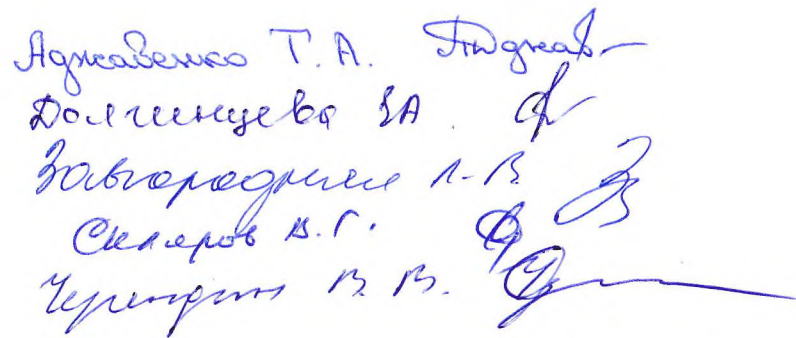 Аджавенко Т.А.
Долгинцева ЗА
Завгородняя Л.В.
Скляров В.Г.
В.В.